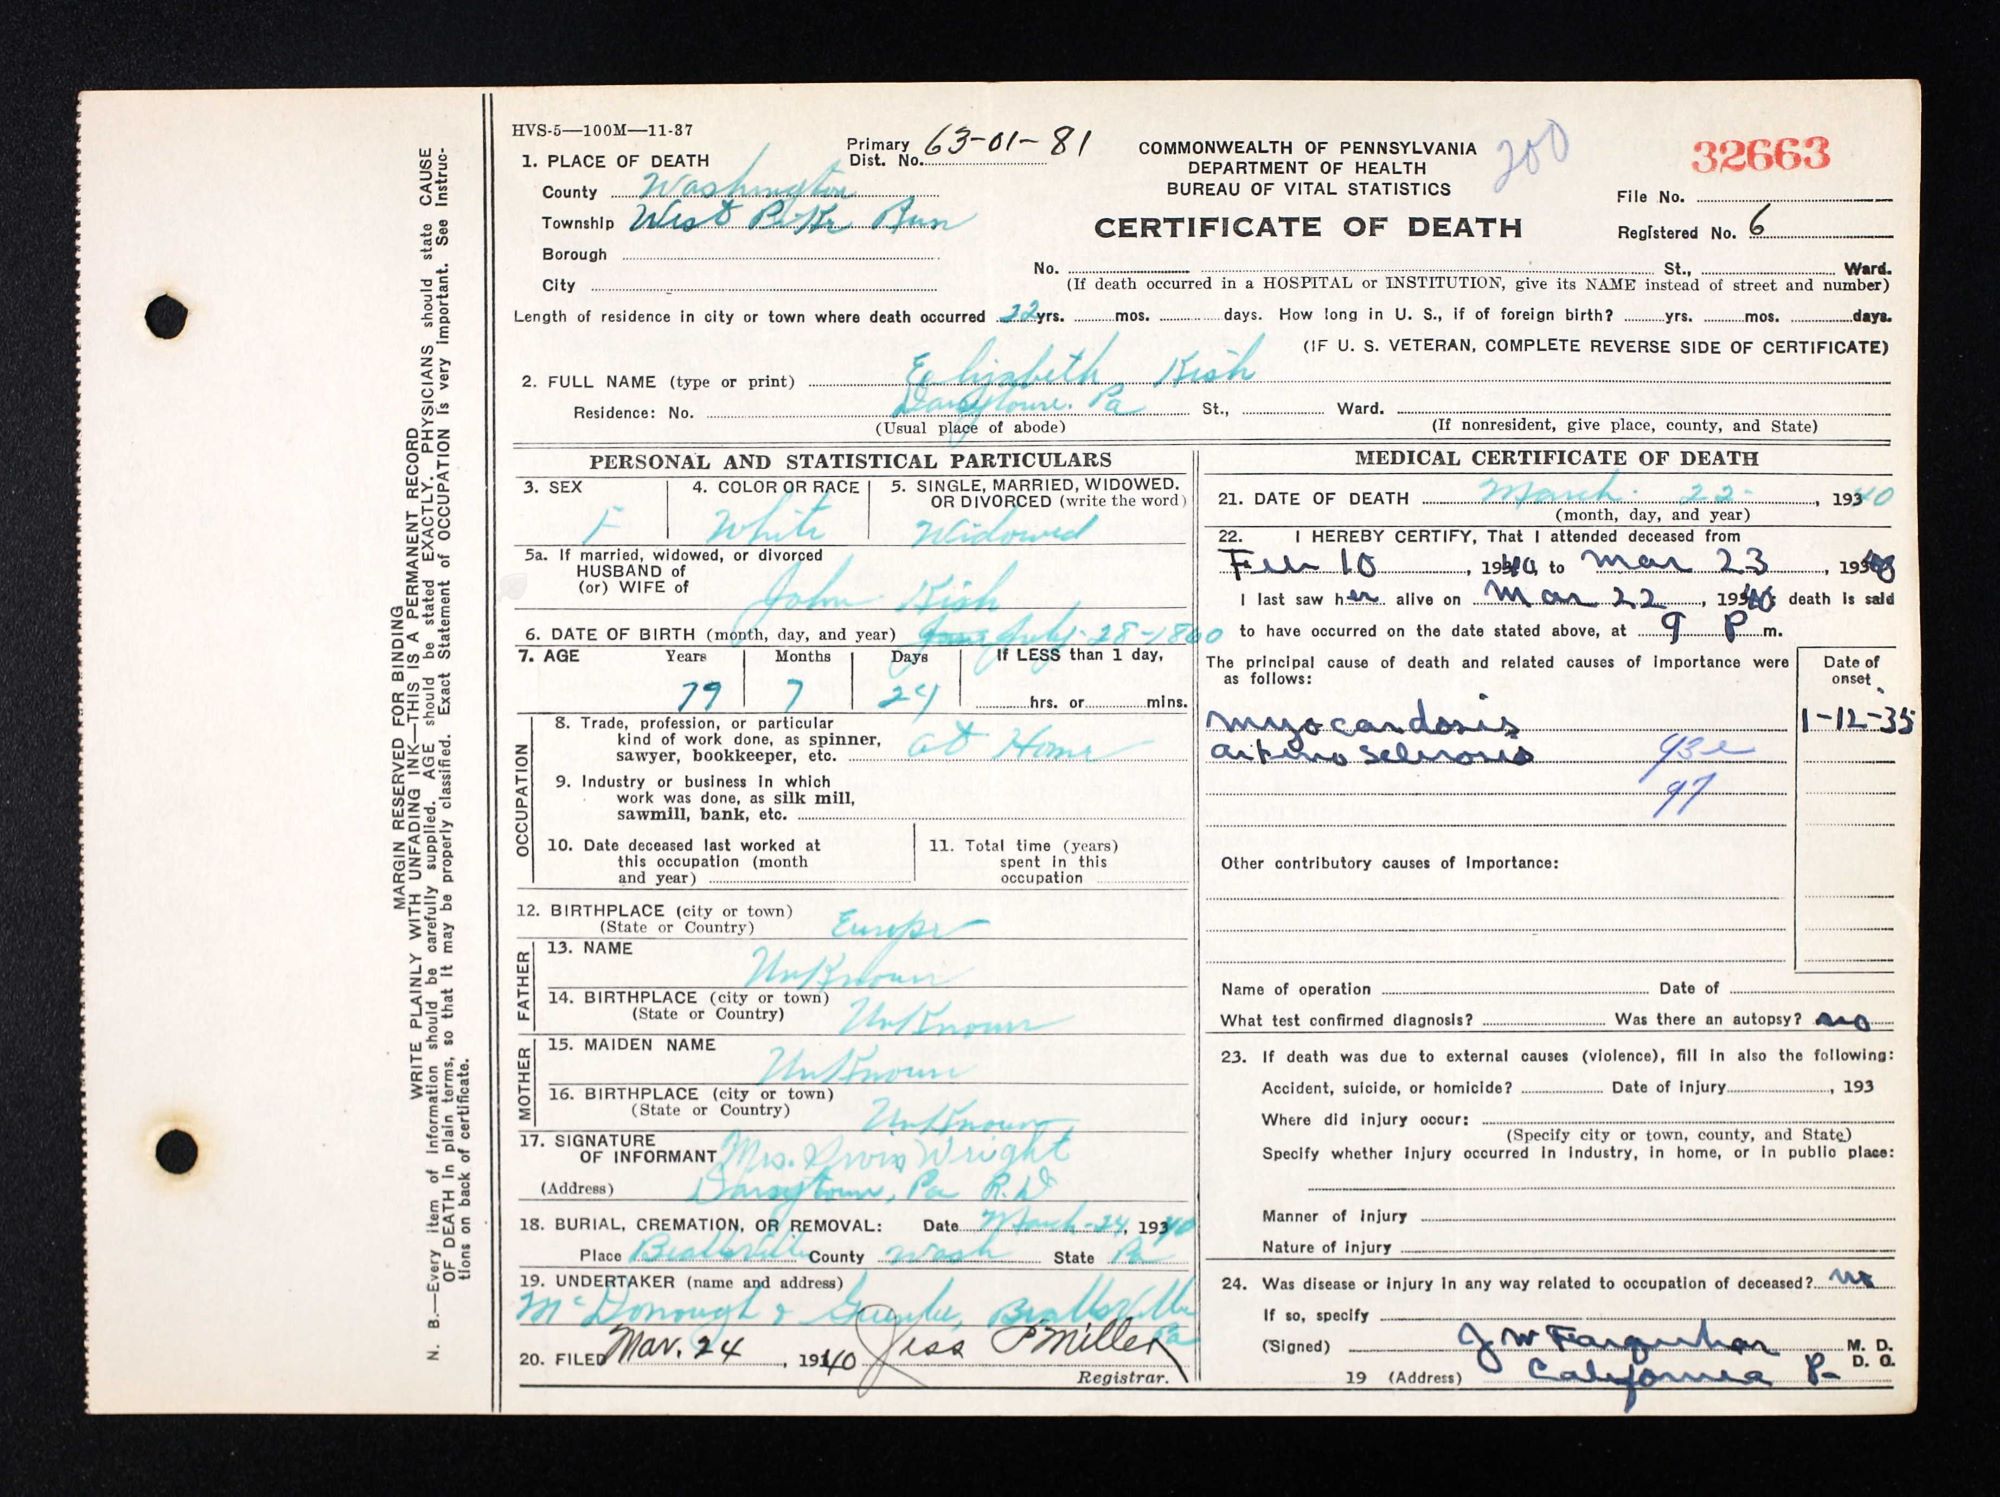 HVS-5—100M—11-37
1. PLACE OF DEATH
Primary Dist. No. 63-01-81
County Washington
Township West Pike Run
Borough
City
COMMONWEALTH OF PENNSYLVANIA
DEPARTMENT OF HEALTH
BUREAU OF VITAL STATISTICS
CERTIFICATE OF DEATH
200
32663
File No.
Registered No. 6
No. St., Ward.
(If death occurred in a HOSPITAL or INSTITUTION, give its NAME instead of street and number)
Length of residence in city or town where death occurred 22 yrs. mos. days. How long in U. S., if of foreign birth? yrs. mos. days.
(IF U. S. VETERAN, COMPLETE REVERSE SIDE OF CERTIFICATE)
2. FULL NAME (type or print) Elizabeth Kish
Residence: No. Daisytown. Pa St., Ward.
(Usual place of abode) (If nonresident, give place, county, and State)
PERSONAL AND STATISTICAL PARTICULARS
3. SEX
F
4. COLOR OR RACE
White
5. SINGLE, MARRIED, WIDOWED. OR DIVORCED (write the word)
Widowed
5a. If married, widowed, or divorced
HUSBAND of
(or) WIFE of John Kish
6. DATE OF BIRTH (month, day, and year) July-28-1860
7. AGE Years Months Days If LESS than 1 day,
79 7 24 hrs. or mins.
OCCUPATION
8. Trade, profession, or particular
kind of work done, as spinner,
sawyer, bookkeeper, etc. at Home
9. Industry or business in which
work was done, as silk mill,
sawmill, bank, etc.
10. Date deceased last worked at
this occupation (month
and year)
11. Total time (years)
spent in this
occupation
12. BIRTHPLACE (city or town)
(State or Country) Europe
FATHER
13. NAME UnKnown
14. BIRTHPLACE (city or town)
(State or Country) UnKnown
MOTHER
15. MAIDEN NAME UnKnown
16. BIRTHPLACE (city or town)
(State or Country) UnKnown
17. SIGNATURE
OF INFORMANT Mrs. Wright
(Address) Daisytown, Pa R.D
18. BURIAL, CREMATION, OR REMOVAL: Date March-24, 1940
Place Beallsville County Wash State Pa
19. UNDERTAKER (name and address)
McDonough & Beallsville
Pa
20. FILED Mar. 24, 1940 Jess P Miller
Registrar.
MEDICAL CERTIFICATE OF DEATH
21. DATE OF DEATH March. 22-, 19340
(month, day, and year)
22. I HEREBY CERTIFY, That I attended deceased from
Feb 10, 1940, to Mar 23, 1940
I last saw her alive on Mar 22, 1940; death is said
to have occurred on the date stated above, at 9 P m.
The principal cause of death and related causes of importance were
as follows:
Date of
onset
myocardosis 1-12-35
arterio sclerosis 93e
97
Other contributory causes of importance:
Name of operation Date of
What test confirmed diagnosis? Was there an autopsy? no
23. If death was due to external causes (violence), fill in also the following:
Accident, suicide, or homicide? Date of injury, 193
Where did injury occur:
(Specify city or town, county, and State)
Specify whether injury occurred in industry, in home, or in public place:
Manner of injury
Nature of injury
24. Was disease or injury in any way related to occupation of deceased? no
If so, specify
(Signed) J W Farquhar M. D.
D. O.
19 (Address) California Pa
MARGIN RESERVED FOR BINDING
WRITE PLAINLY WITH UNFADING INK—THIS IS A PERMANENT RECORD
N. B.—Every item of information should be carefully supplied. AGE should be stated EXACTLY. PHYSICIANS should state CAUSE
OF DEATH in plain terms, so that it may be properly classified. Exact Statement of OCCUPATION is very important. See instruc-
tions on back of certificate.